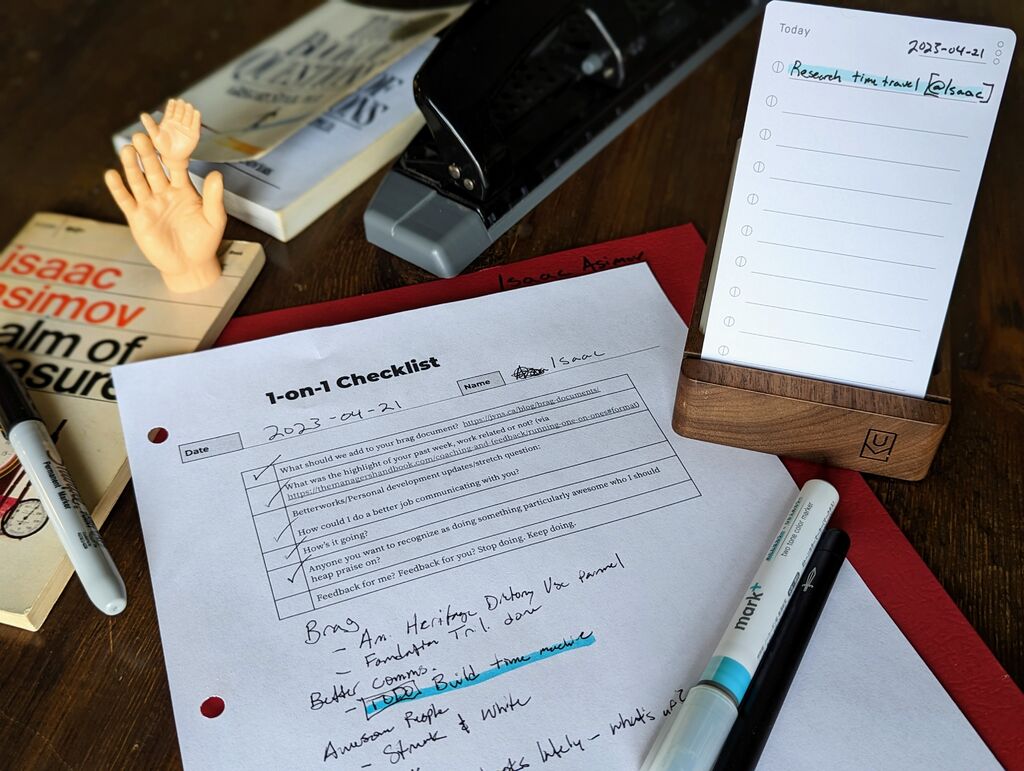 Today
2023-04-21
Research time travel [@Isaac]
isaac
asimov
alm of
asure
Permanent Marker
Isaac Asimov
1-on-1 Checklist
Name
Isaac
Date
2023-04-21
What should we add to your brag document? https://jvns.ca/blog/brag-documents/
What was the highlight of your past week, work related or not? (via
https://themanagershandbook.com/coaching-and-feedback/running-one-on-ones#format)
Betterworks/Personal development updates/stretch question:
How could I do a better job communicating with you?
How's it going?
Anyone you want to recognize as doing something particularly awesome who I should
heap praise on?
Feedback for me? Feedback for you? Stop doing. Keep doing.
Brag
- Am. Heritage Dictionary Use pannel
- Foundation Tril. done
Better comms.
- TODO Build time machine
Awesome People
- Strunk & White
lately - what's up?
mark+
two tone color marker